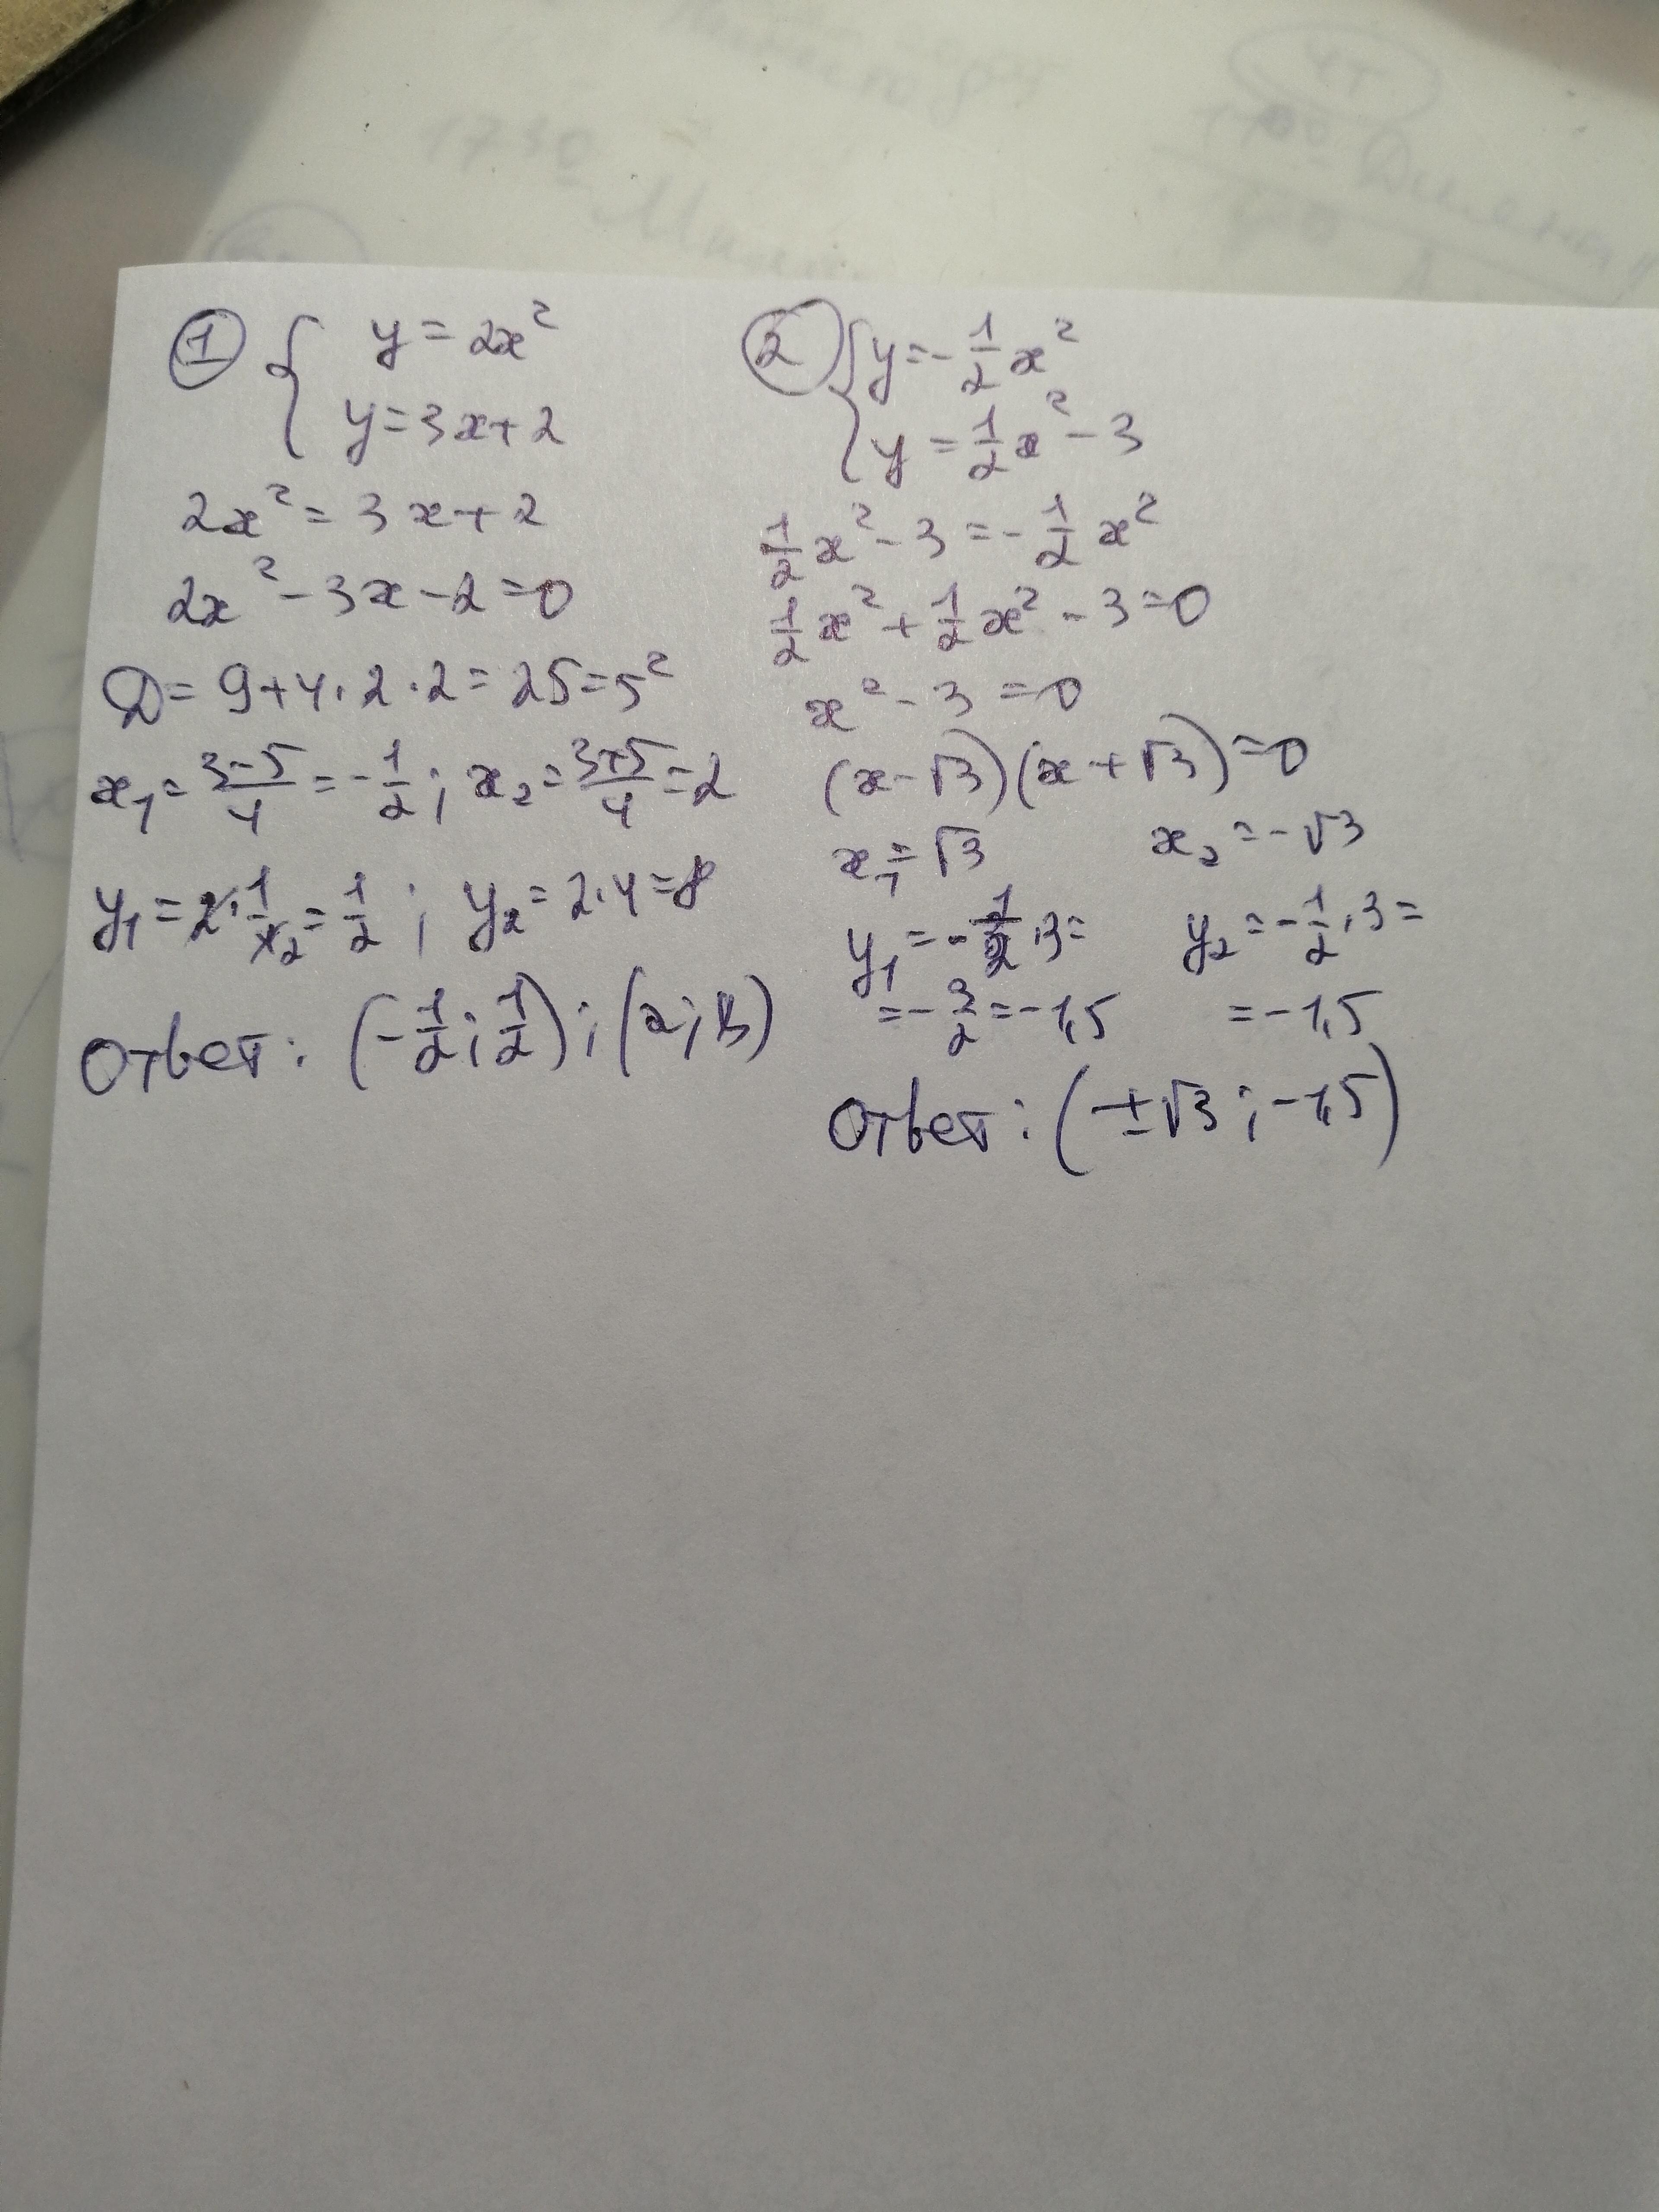 1 { y = 2x²
y = 3x + 2
2x² = 3x + 2
2x² - 3x - 2 = 0
D = 9 + 4 · 2 · 2 = 25 = 5²
x₁ = (3-5)/4 = - 1/2 ; x₂ = (3+5)/4 = 2
y₁ = 2 · 1/4 2 = 1/2 ; y₂ = 2 · 4 = 8
Ответ: (- 1/2 ; 1/2) ; (2 ; 8)
2 { y = - 1/2 x²
y = 1/2 x² - 3
1/2 x² - 3 = - 1/2 x²
1/2 x² + 1/2 x² - 3 = 0
x² - 3 = 0
(x - √3)(x + √3) = 0
x₁ = √3 x₂ = - √3
y₁ = - 1/2 · 3 = y₂ = - 1/2 · 3 =
= - 3/2 = -1,5 = -1,5
Ответ: (± √3 ; -1,5)
1730